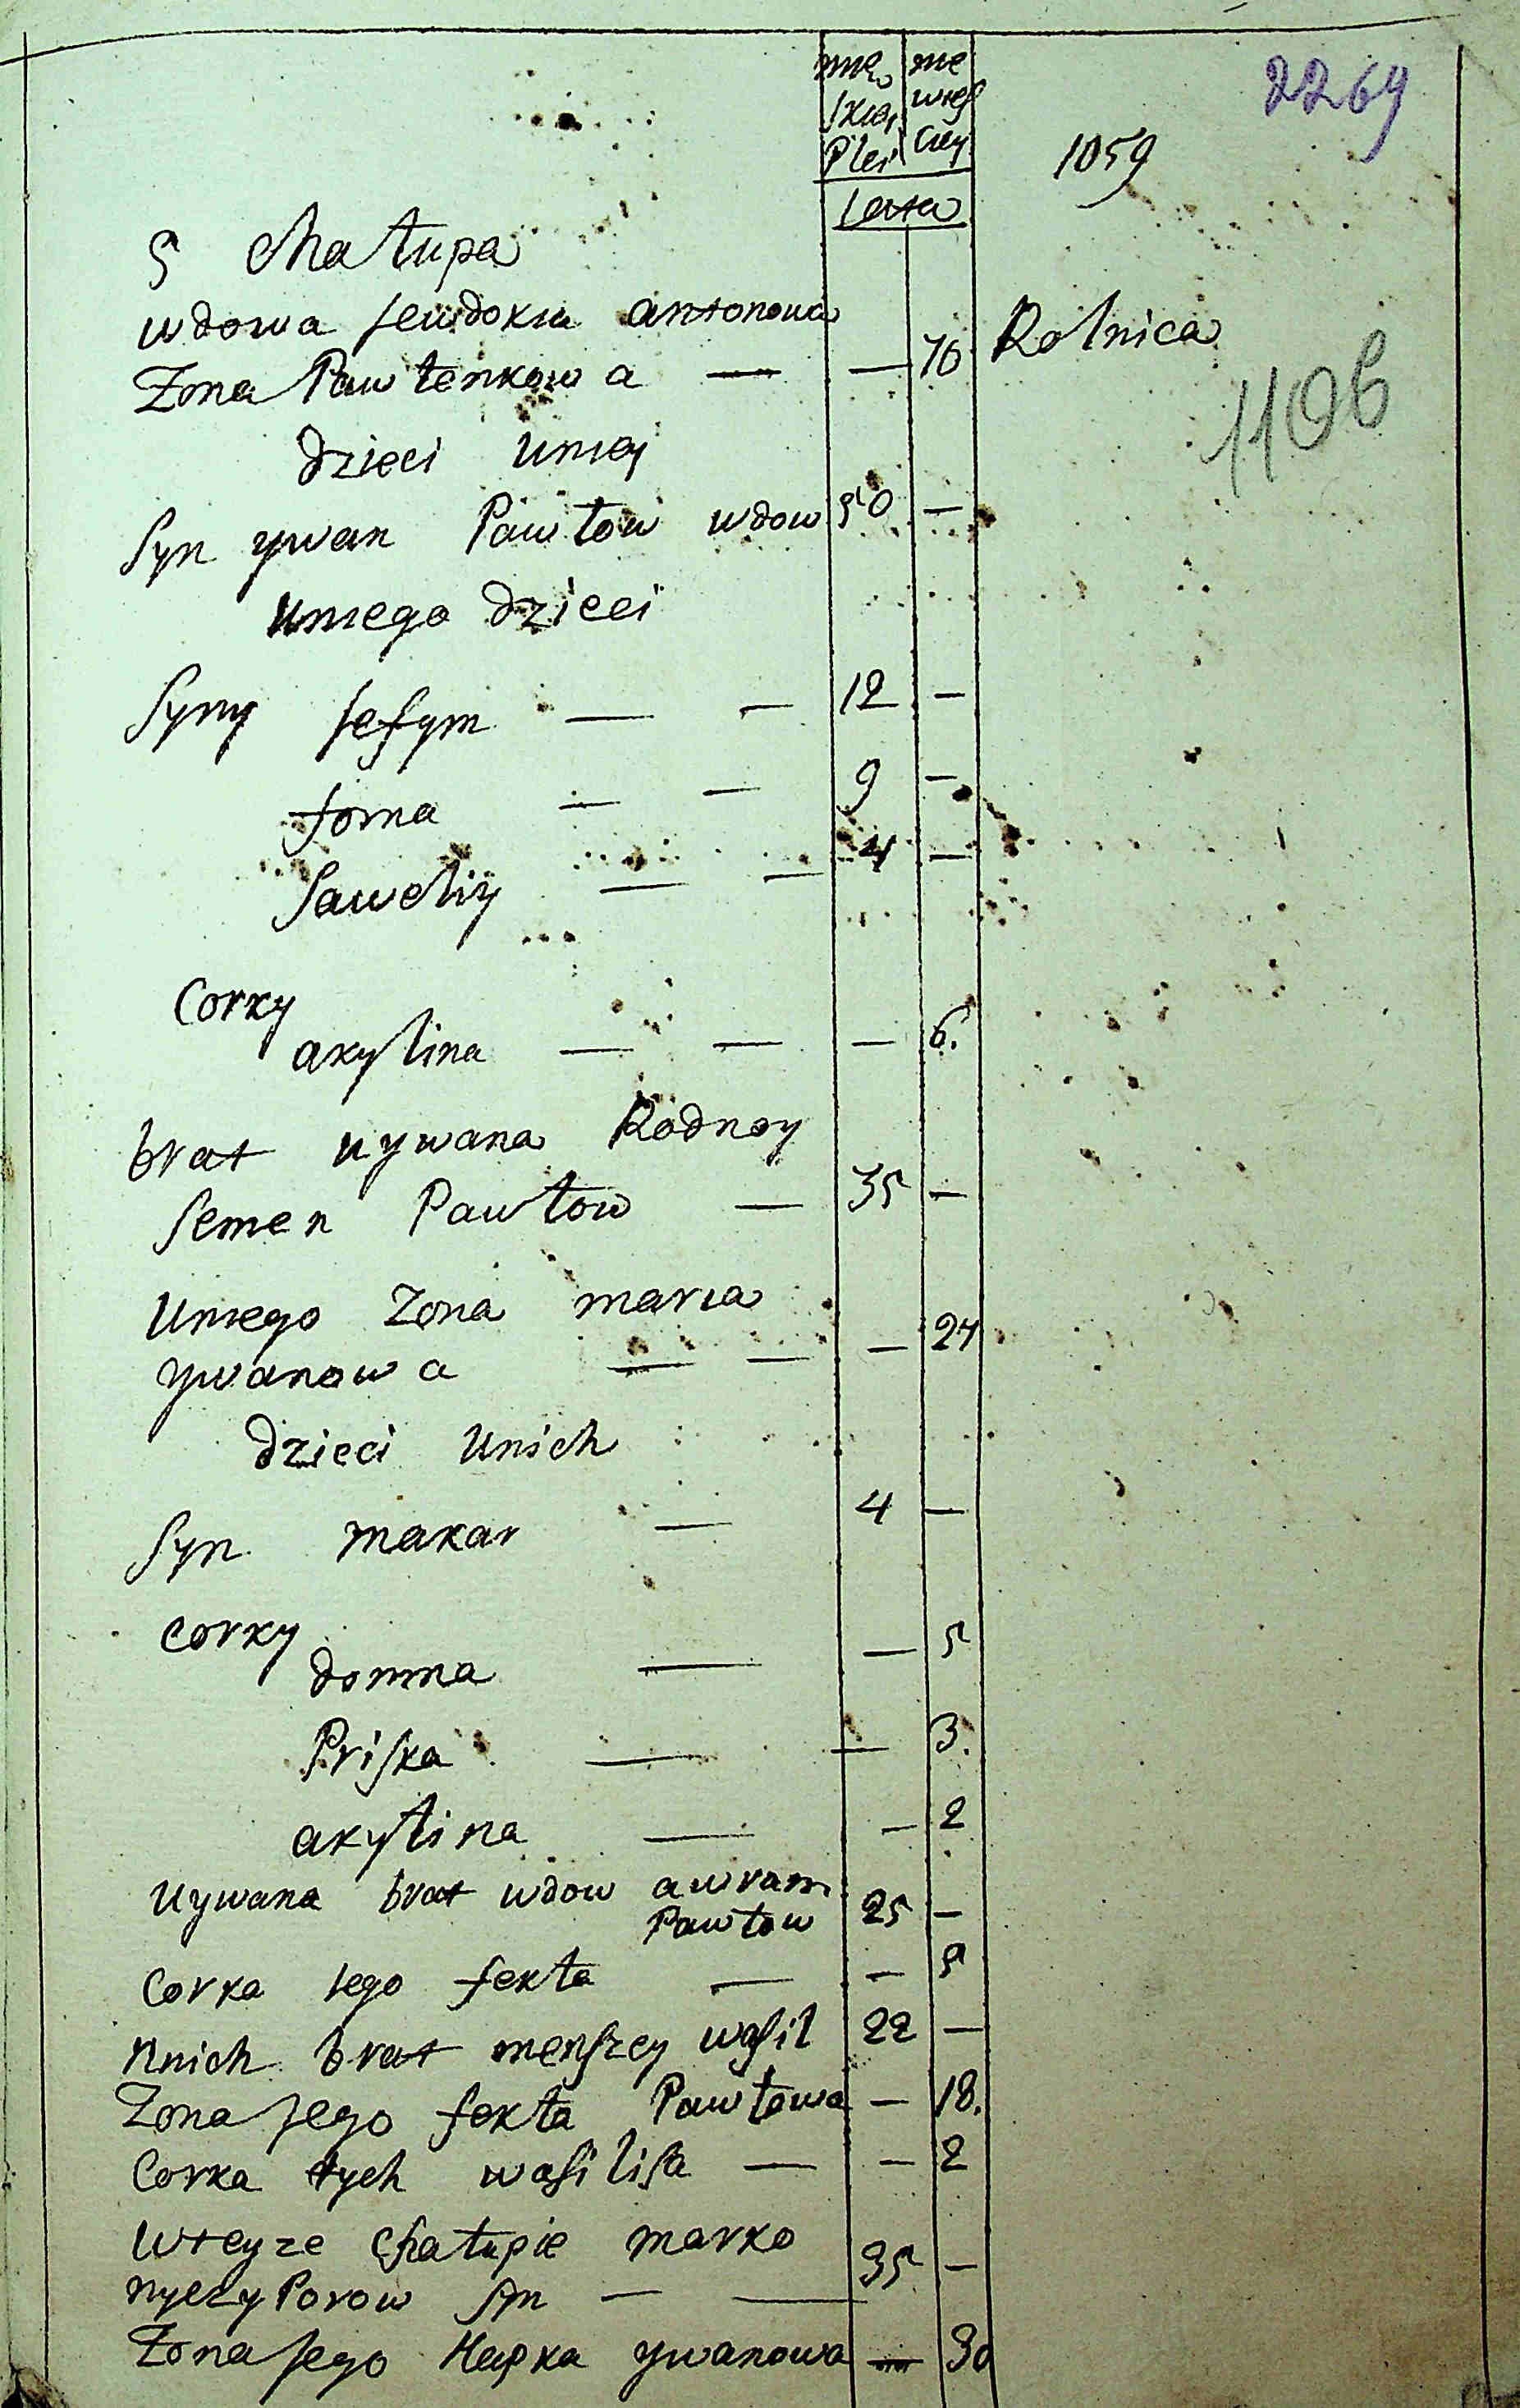 2269
męz nie
skiej wies
Plei ciey
1059
Lata
5 chałupa
wdowa Jewdokia antonowa
Zona Pawłenkowa — — 70 Rolnica
1106
dzieci uniej
Syn ywan Pawłow wdow 50 —
uniego dzieci
Syny Jefym — — 12 —
foma — — 9 —
Saweliy — — 4 —
Corky
akylina — — — 6.
brat uywana Rodnoy
Semen Pawłow — 35 —
uniego Zona maria
ywanowa — — — 24
dzieci unich
Syn makar — 4 —
corky
domna — — 5
Priska — — 3.
akylina — — 2
uywana brat wdow awram
Pawłow 25 —
Corka iego fekła — — 5
unich brat menszey wasil 22 —
Zona Jego fekła Pawłowa — 18.
Corka tych wasilisa — — 2
wteyze chałupie marko
nyczyPorow syn — — 35 —
Zona Jego Hapka ywanowa — 30